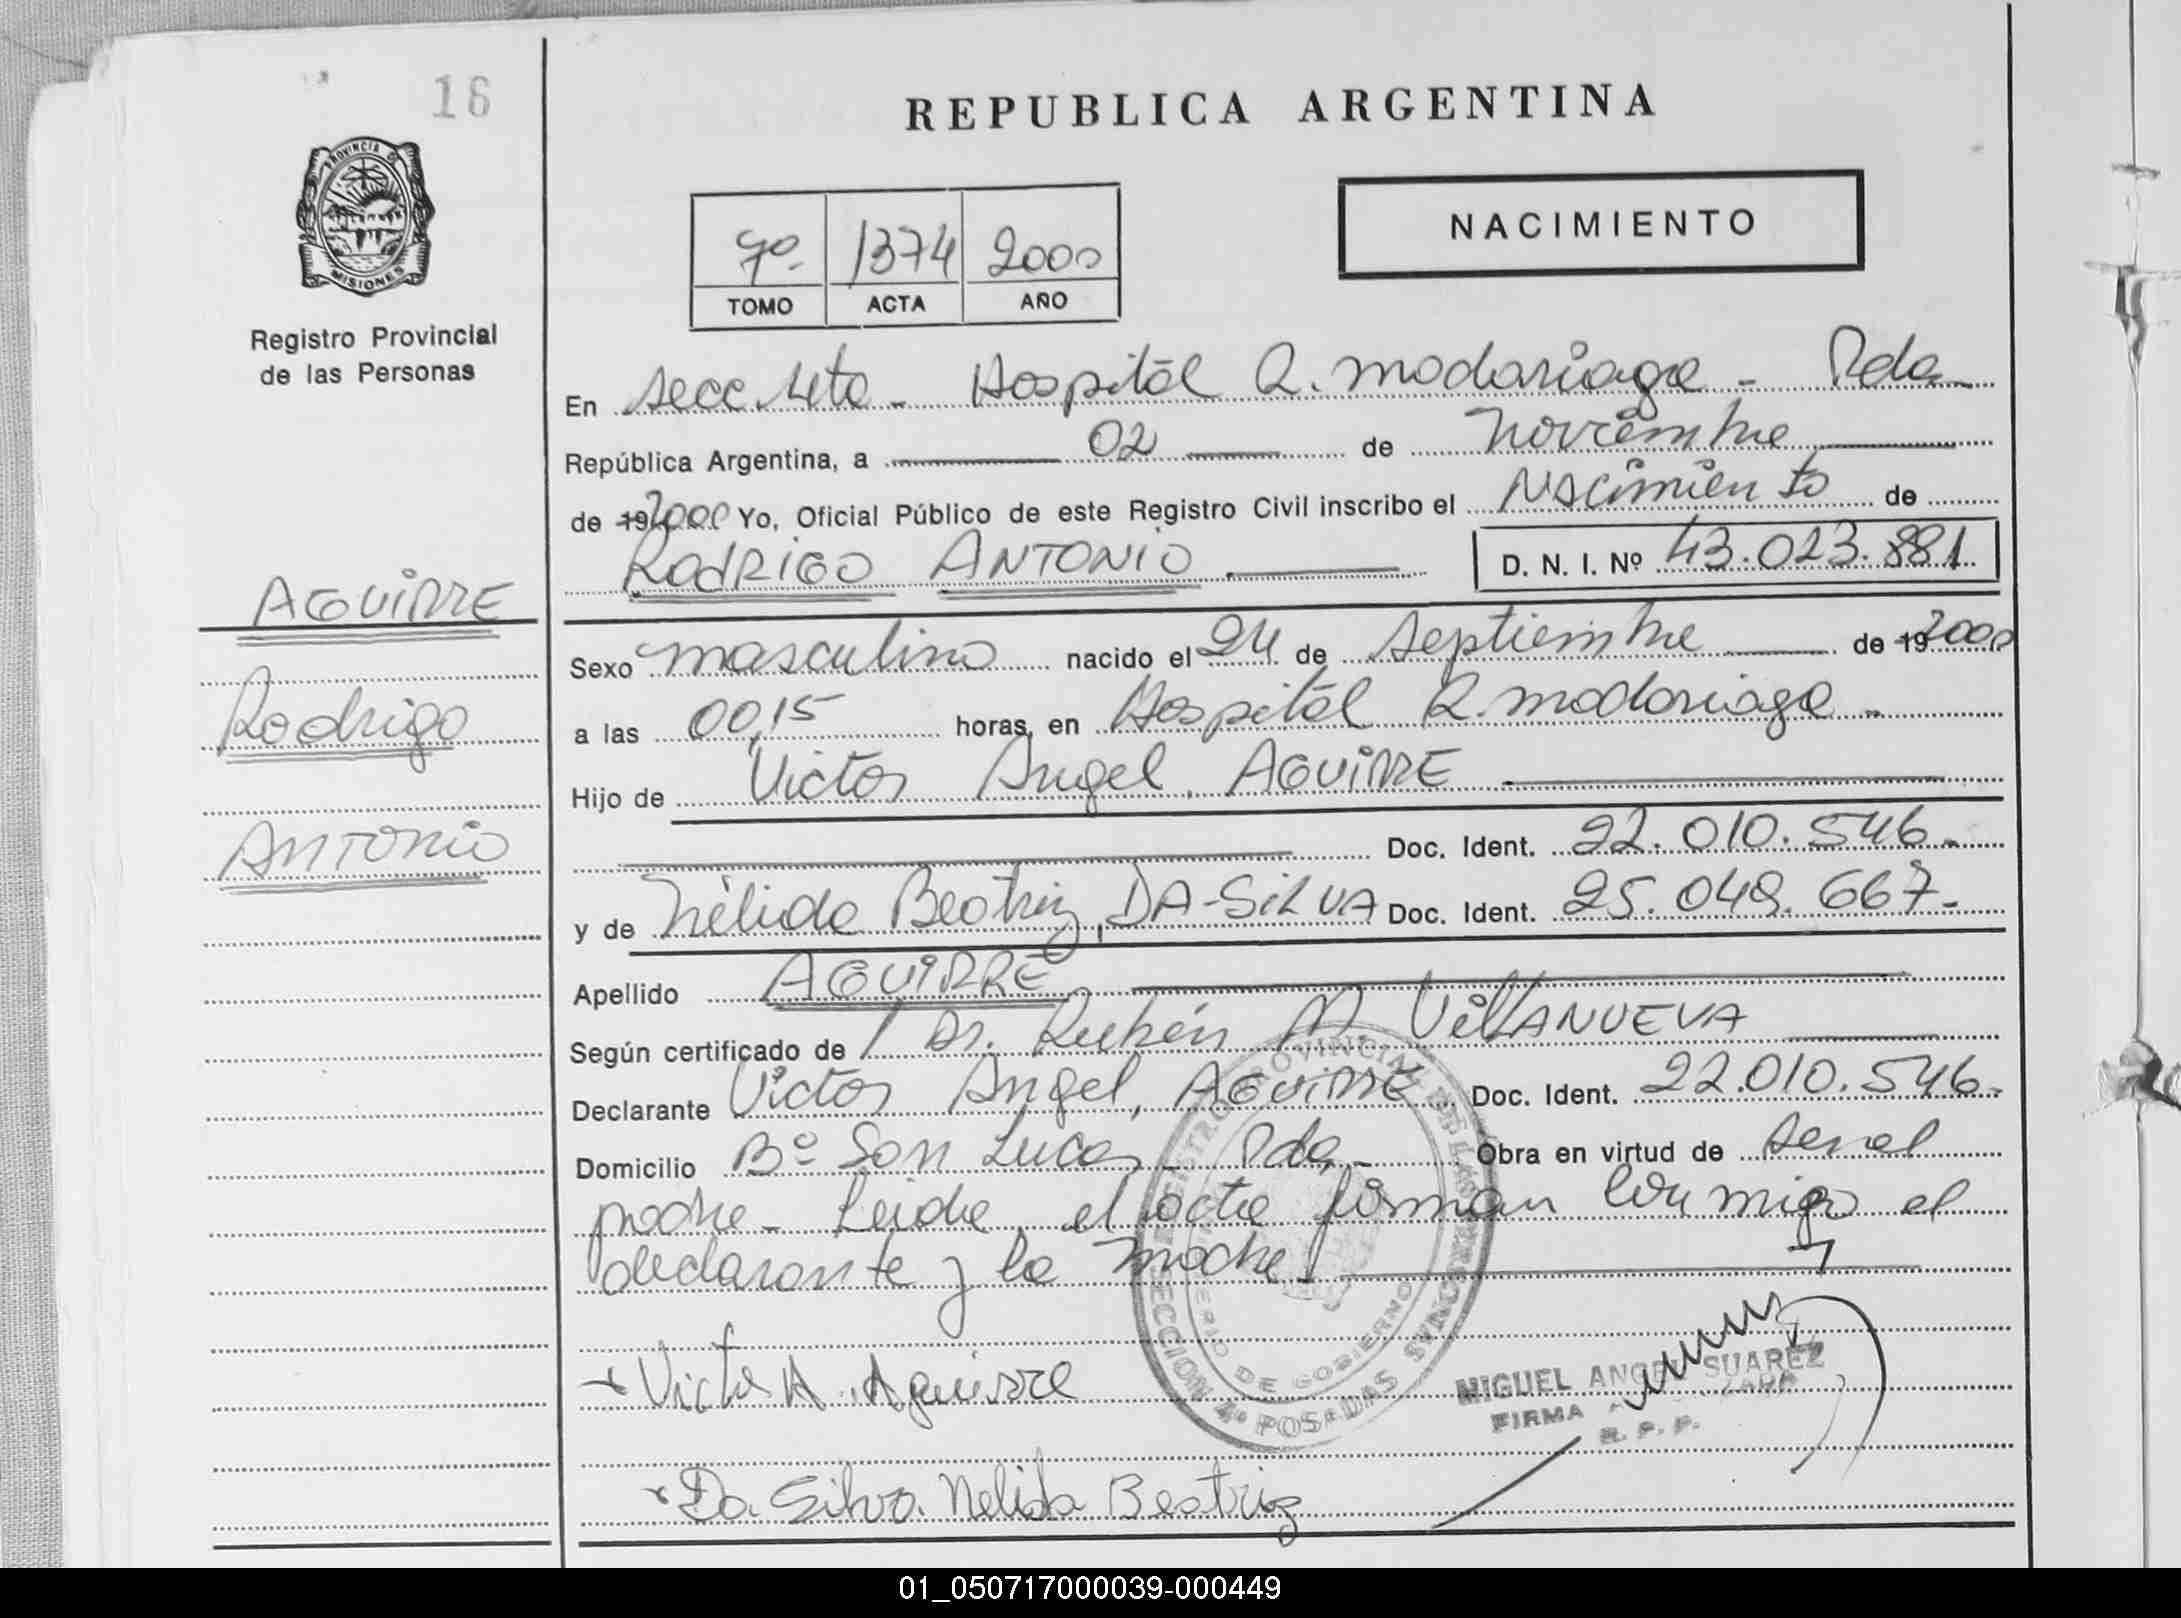 16
PROVINCIA DE
MISIONES
Registro Provincial
de las Personas
AGUIRRE
Rodrigo
Antonio
REPUBLICA ARGENTINA
7º- 1374 2000
TOMO ACTA AÑO
NACIMIENTO
En Secc. 4ta - Hospital R. Madariaga - Pdas
República Argentina, a 02 de Noviembre
de 192000 Yo, Oficial Público de este Registro Civil inscribo el Nacimiento de
RODRIGO ANTONIO D. N. I. Nº 43.023.881.
Sexo masculino nacido el 24 de Septiembre de 192000
a las 00,15 horas, en Hospital R. Madariaga -
Hijo de Victor Angel, AGUIRRE
Doc. Ident. 22.010.546.
y de Nélida Beatriz, DA-SILVA Doc. Ident. 25.049.667.
Apellido AGUIRRE
Según certificado de Dr. Rubén M VILLANUEVA
Declarante Victor Angel, AGUIRRE Doc. Ident. 22.010.546.
Domicilio Bº San Lucas - Pdas - Obra en virtud de ser el
padre - Leida el acta firman conmigo el
declarante y la madre
Victor A. Aguirre
MIGUEL ANGEL SUAREZ
FIRMA
R. P. P.
Da Silva Nelida Beatriz
REGISTRO PROVINCIAL DE LAS PERSONAS
SECCION 4º POSADAS
DE GOBIERNO
01_050717000039-000449